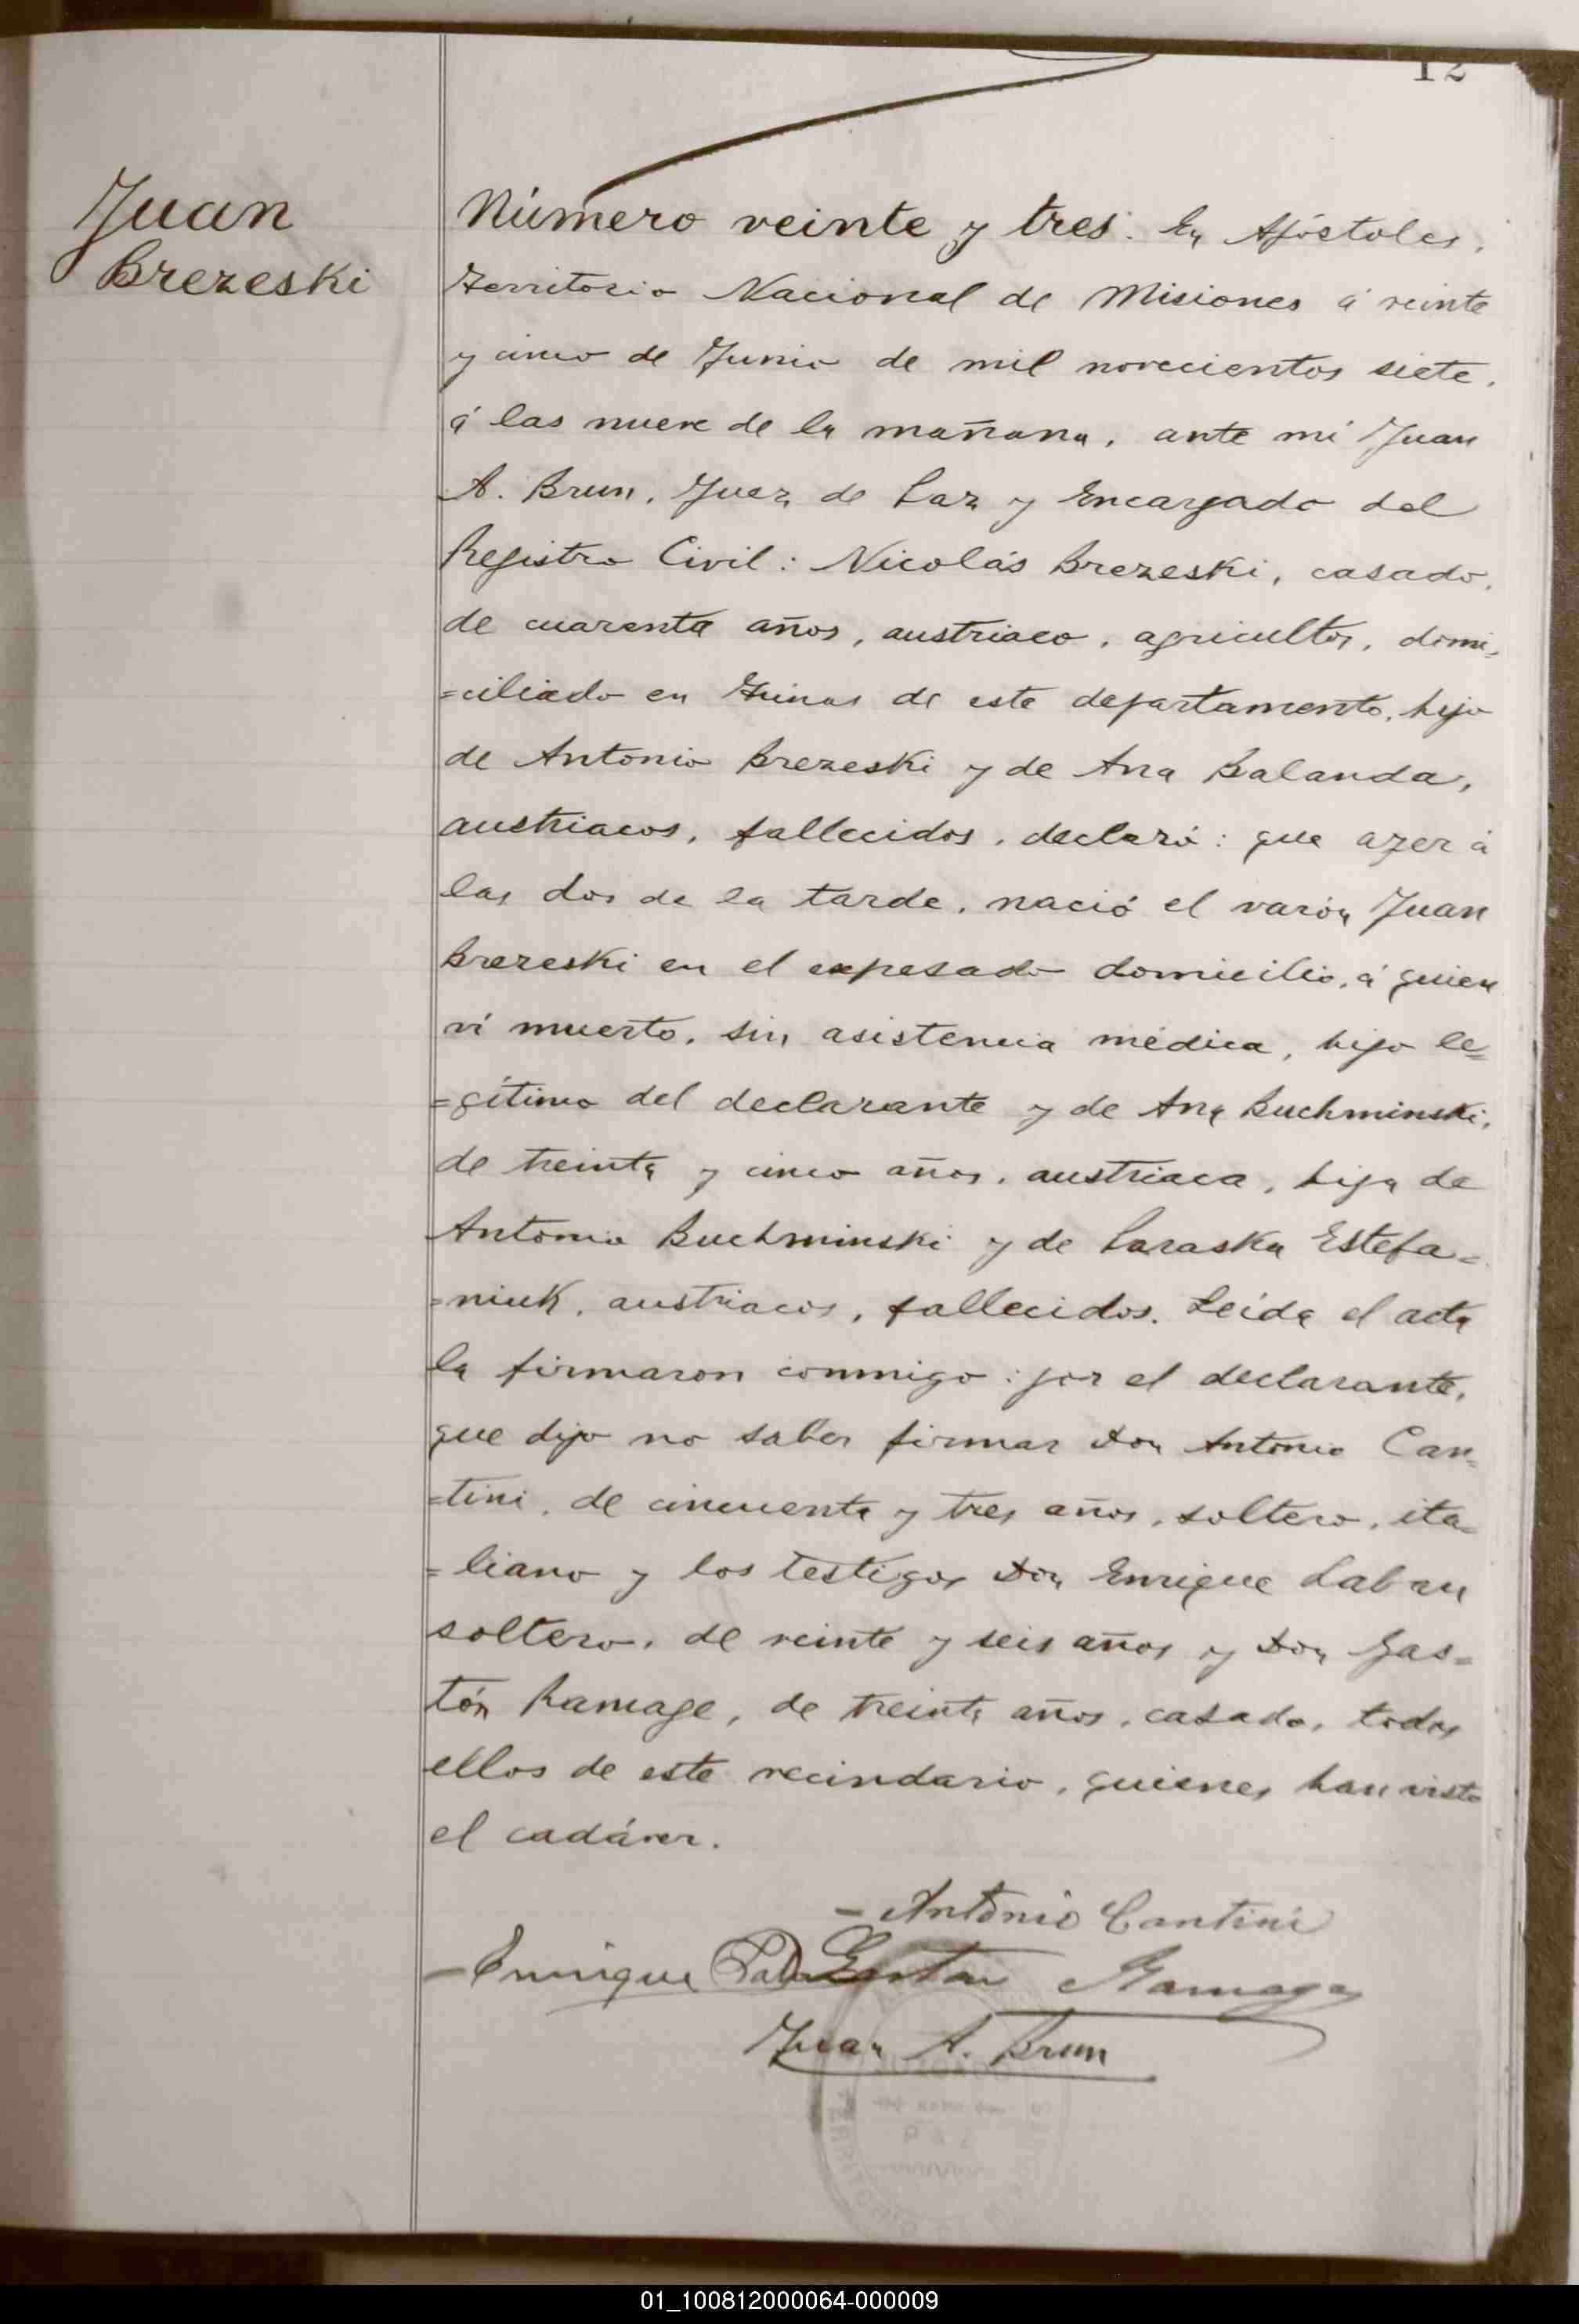 12
Juan
Brezeski
Número veinte y tres. En Apóstoles,
Territorio Nacional de Misiones á veinte
y cinco de Junio de mil novecientos siete,
á las nueve de la mañana, ante mí Juan
A. Brun, Juez de Paz y Encargado del
Registro Civil: Nicolás Brezeski, casado,
de cuarenta años, austriaco, agricultor, domi-
=ciliado en de este departamento, hijo
de Antonio Brezeski y de Ana Balanda,
austriacos, fallecidos, declaró: que ayer á
las dos de la tarde, nació el varón Juan
Brezeski en el expesado domicilio, á quien
ví muerto, sin asistencia médica, hijo le=
=gítimo del declarante y de Ana Buchminski,
de treinta y cinco años, austriaca, hija de
Antonio Buchminski y de Paraska Estefa=
=niuk, austriacos, fallecidos. Leída el acta
la firmaron conmigo: por el declarante,
que dijo no saber firmar Don Antonio Can=
=tini, de cincuenta y tres años, soltero, ita=
=liano y los testigos Don Enrique Laban
soltero, de veinte y seis años y Don Gas=
tón Ramage, de treinta años, casado, todos
ellos de este vecindario, quienes han visto
el cadáver.
- Antonio Cantini
- Enrique Ramage
Juan A. Brun
01_100812000064-000009